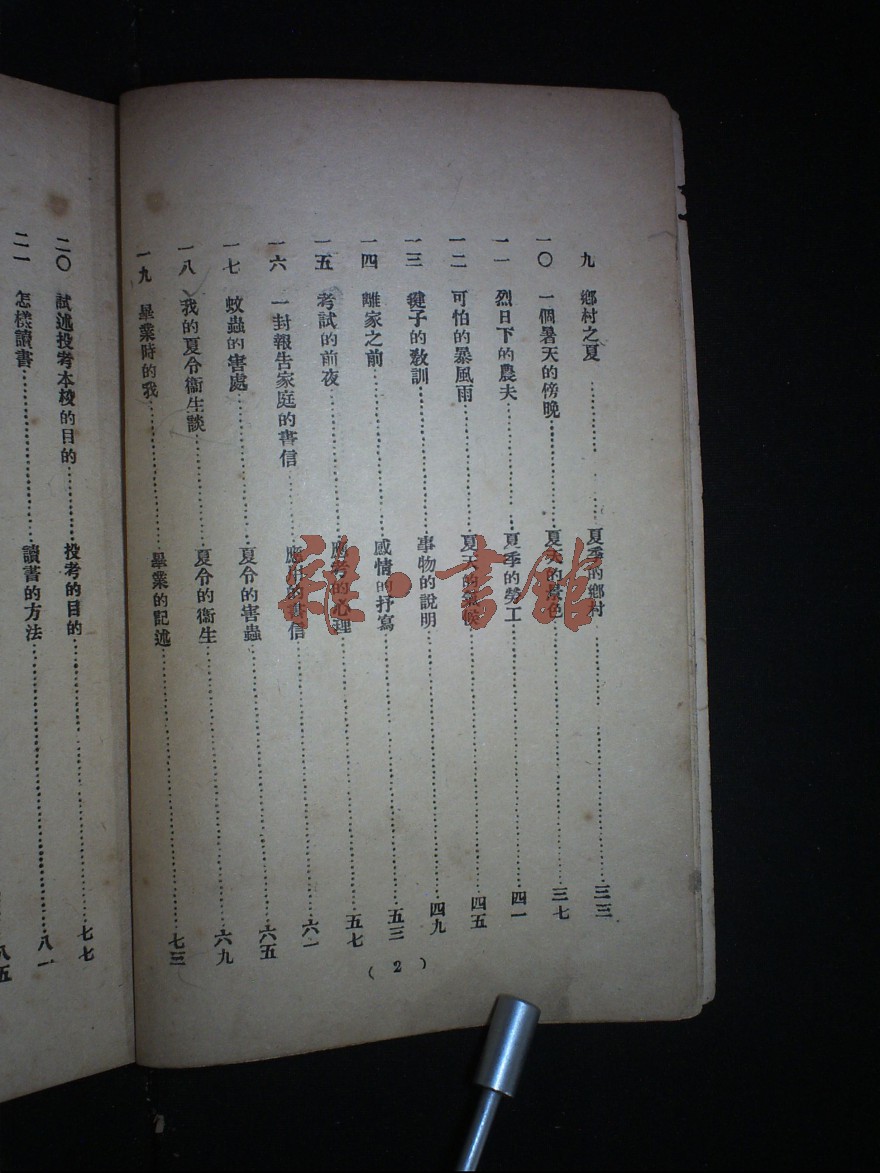 九 鄉村之夏…………夏季的鄉村…………三三
一〇 一個暑天的傍晚…………夏天的景色…………三七
一一 烈日下的農夫…………夏季的勞工…………四一
一二 可怕的暴風雨…………夏天的氣候…………四五
一三 毽子的教訓…………事物的說明…………四九
一四 離家之前…………感情的抒寫…………五三
一五 考試的前夜…………應考的心理…………五七
一六 一封報告家庭的書信…………應用的書信…………六一
一七 蚊蟲的害處…………夏令的害蟲…………六五
一八 我的夏令衞生談…………夏令的衞生…………六九
一九 畢業時的我…………畢業的記述…………七三
(2)
二〇 試述投考本校的目的…………投考的目的…………七七
二一 怎樣讀書…………讀書的方法…………八一
八五
雜·書館